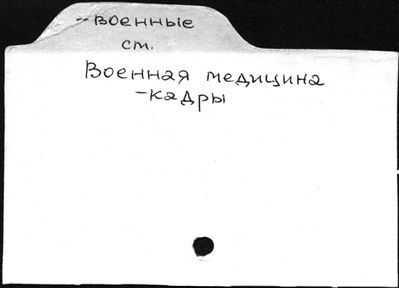 -военные
см.
Военная медицина
-кадры